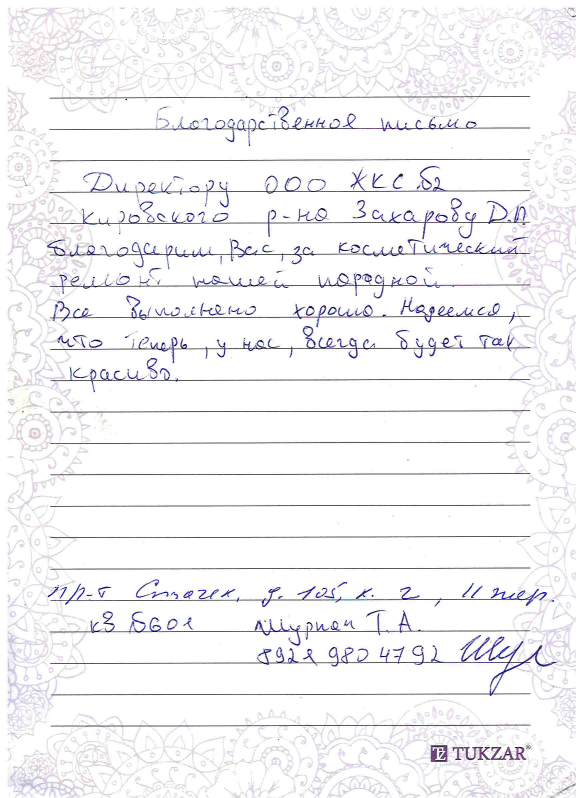 Благодарственное письмо
Директору ООО ЖКС №2
Кировского р-на Захарову Д.П.
благодарим, Вас, за косметический
ремонт нашей парадной.
Все выполнено хорошо. Надеемся,
что теперь, у нас, всегда будет так
красиво.
пр-т Стачек, д. 105, к. 2, 11 пар.
кв №601 Т. А.
8921 980 47 92
TUKZAR